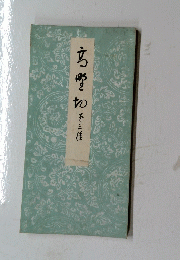 高野切 第三種